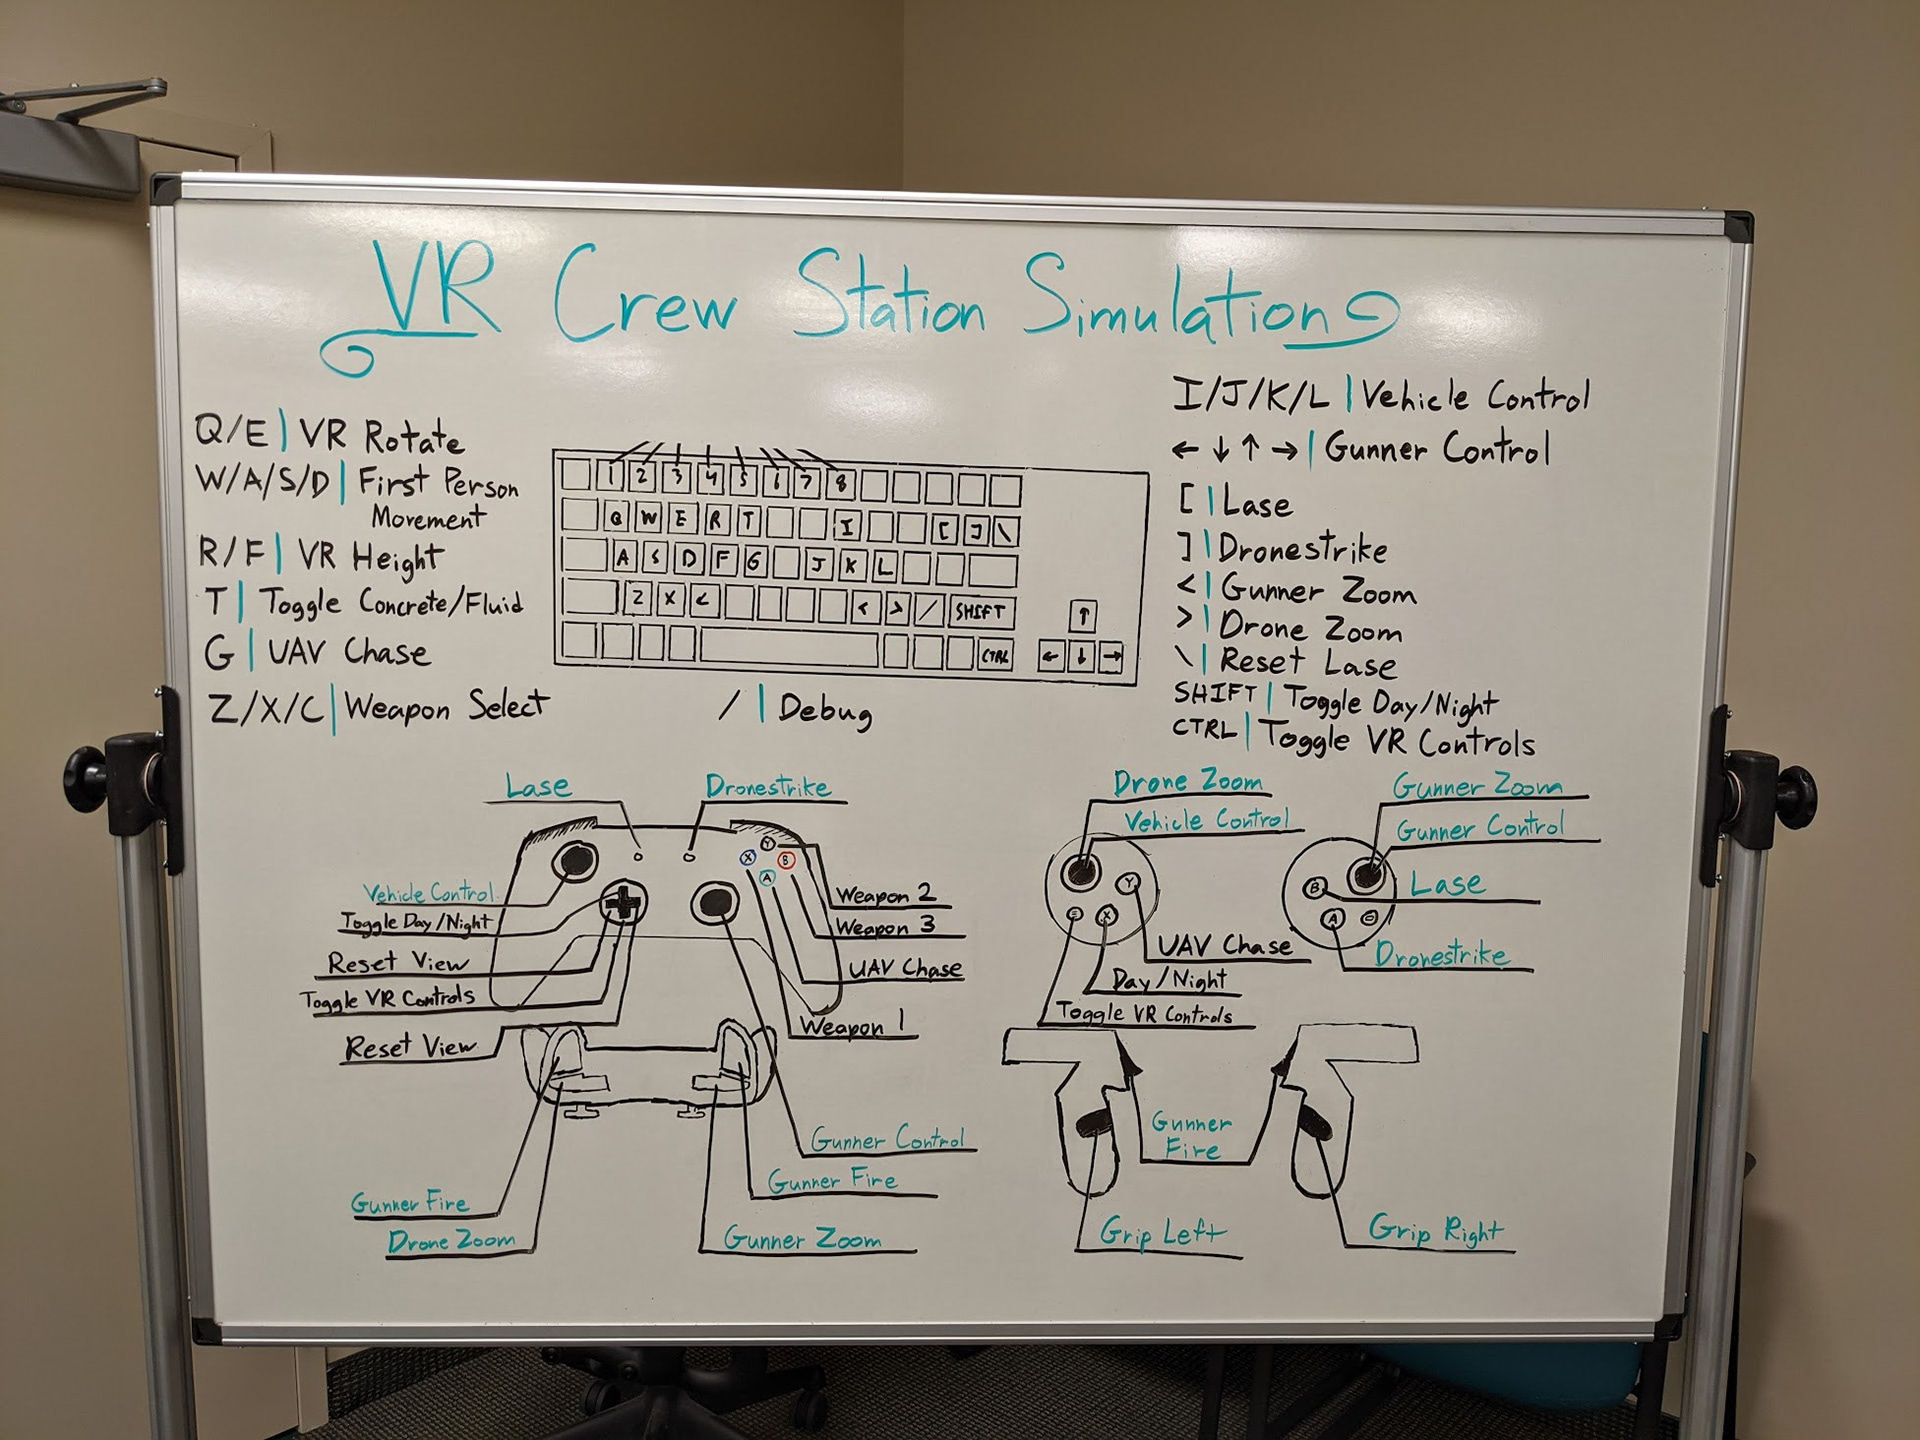 VR Crew Station Simulation
Q/E | VR Rotate
W/A/S/D | First Person
Movement
R/F | VR Height
T | Toggle Concrete/Fluid
G | UAV Chase
Z/X/C | Weapon Select
1 2 3 4 5 6 7 8
Q W E R T I [ ] \
A S D F G J K L
Z X < < > / SHIFT
CTRL
↑
← ↓ →
/ | Debug
I/J/K/L | Vehicle Control
← ↓ ↑ → | Gunner Control
[ | Lase
] | Dronestrike
< | Gunner Zoom
> | Drone Zoom
\ | Reset Lase
SHIFT | Toggle Day/Night
CTRL | Toggle VR Controls
Lase
Dronestrike
Y
X B
A
Vehicle Control
Toggle Day/Night
Reset View
Toggle VR Controls
Reset View
Weapon 2
Weapon 3
UAV Chase
Weapon 1
Gunner Control
Gunner Fire
Gunner Fire
Drone Zoom
Gunner Zoom
Drone Zoom
Vehicle Control
Y
X
UAV Chase
Day/Night
Toggle VR Controls
Gunner Zoom
Gunner Control
B
A
Lase
Dronestrike
Gunner
Fire
Grip Left
Grip Right